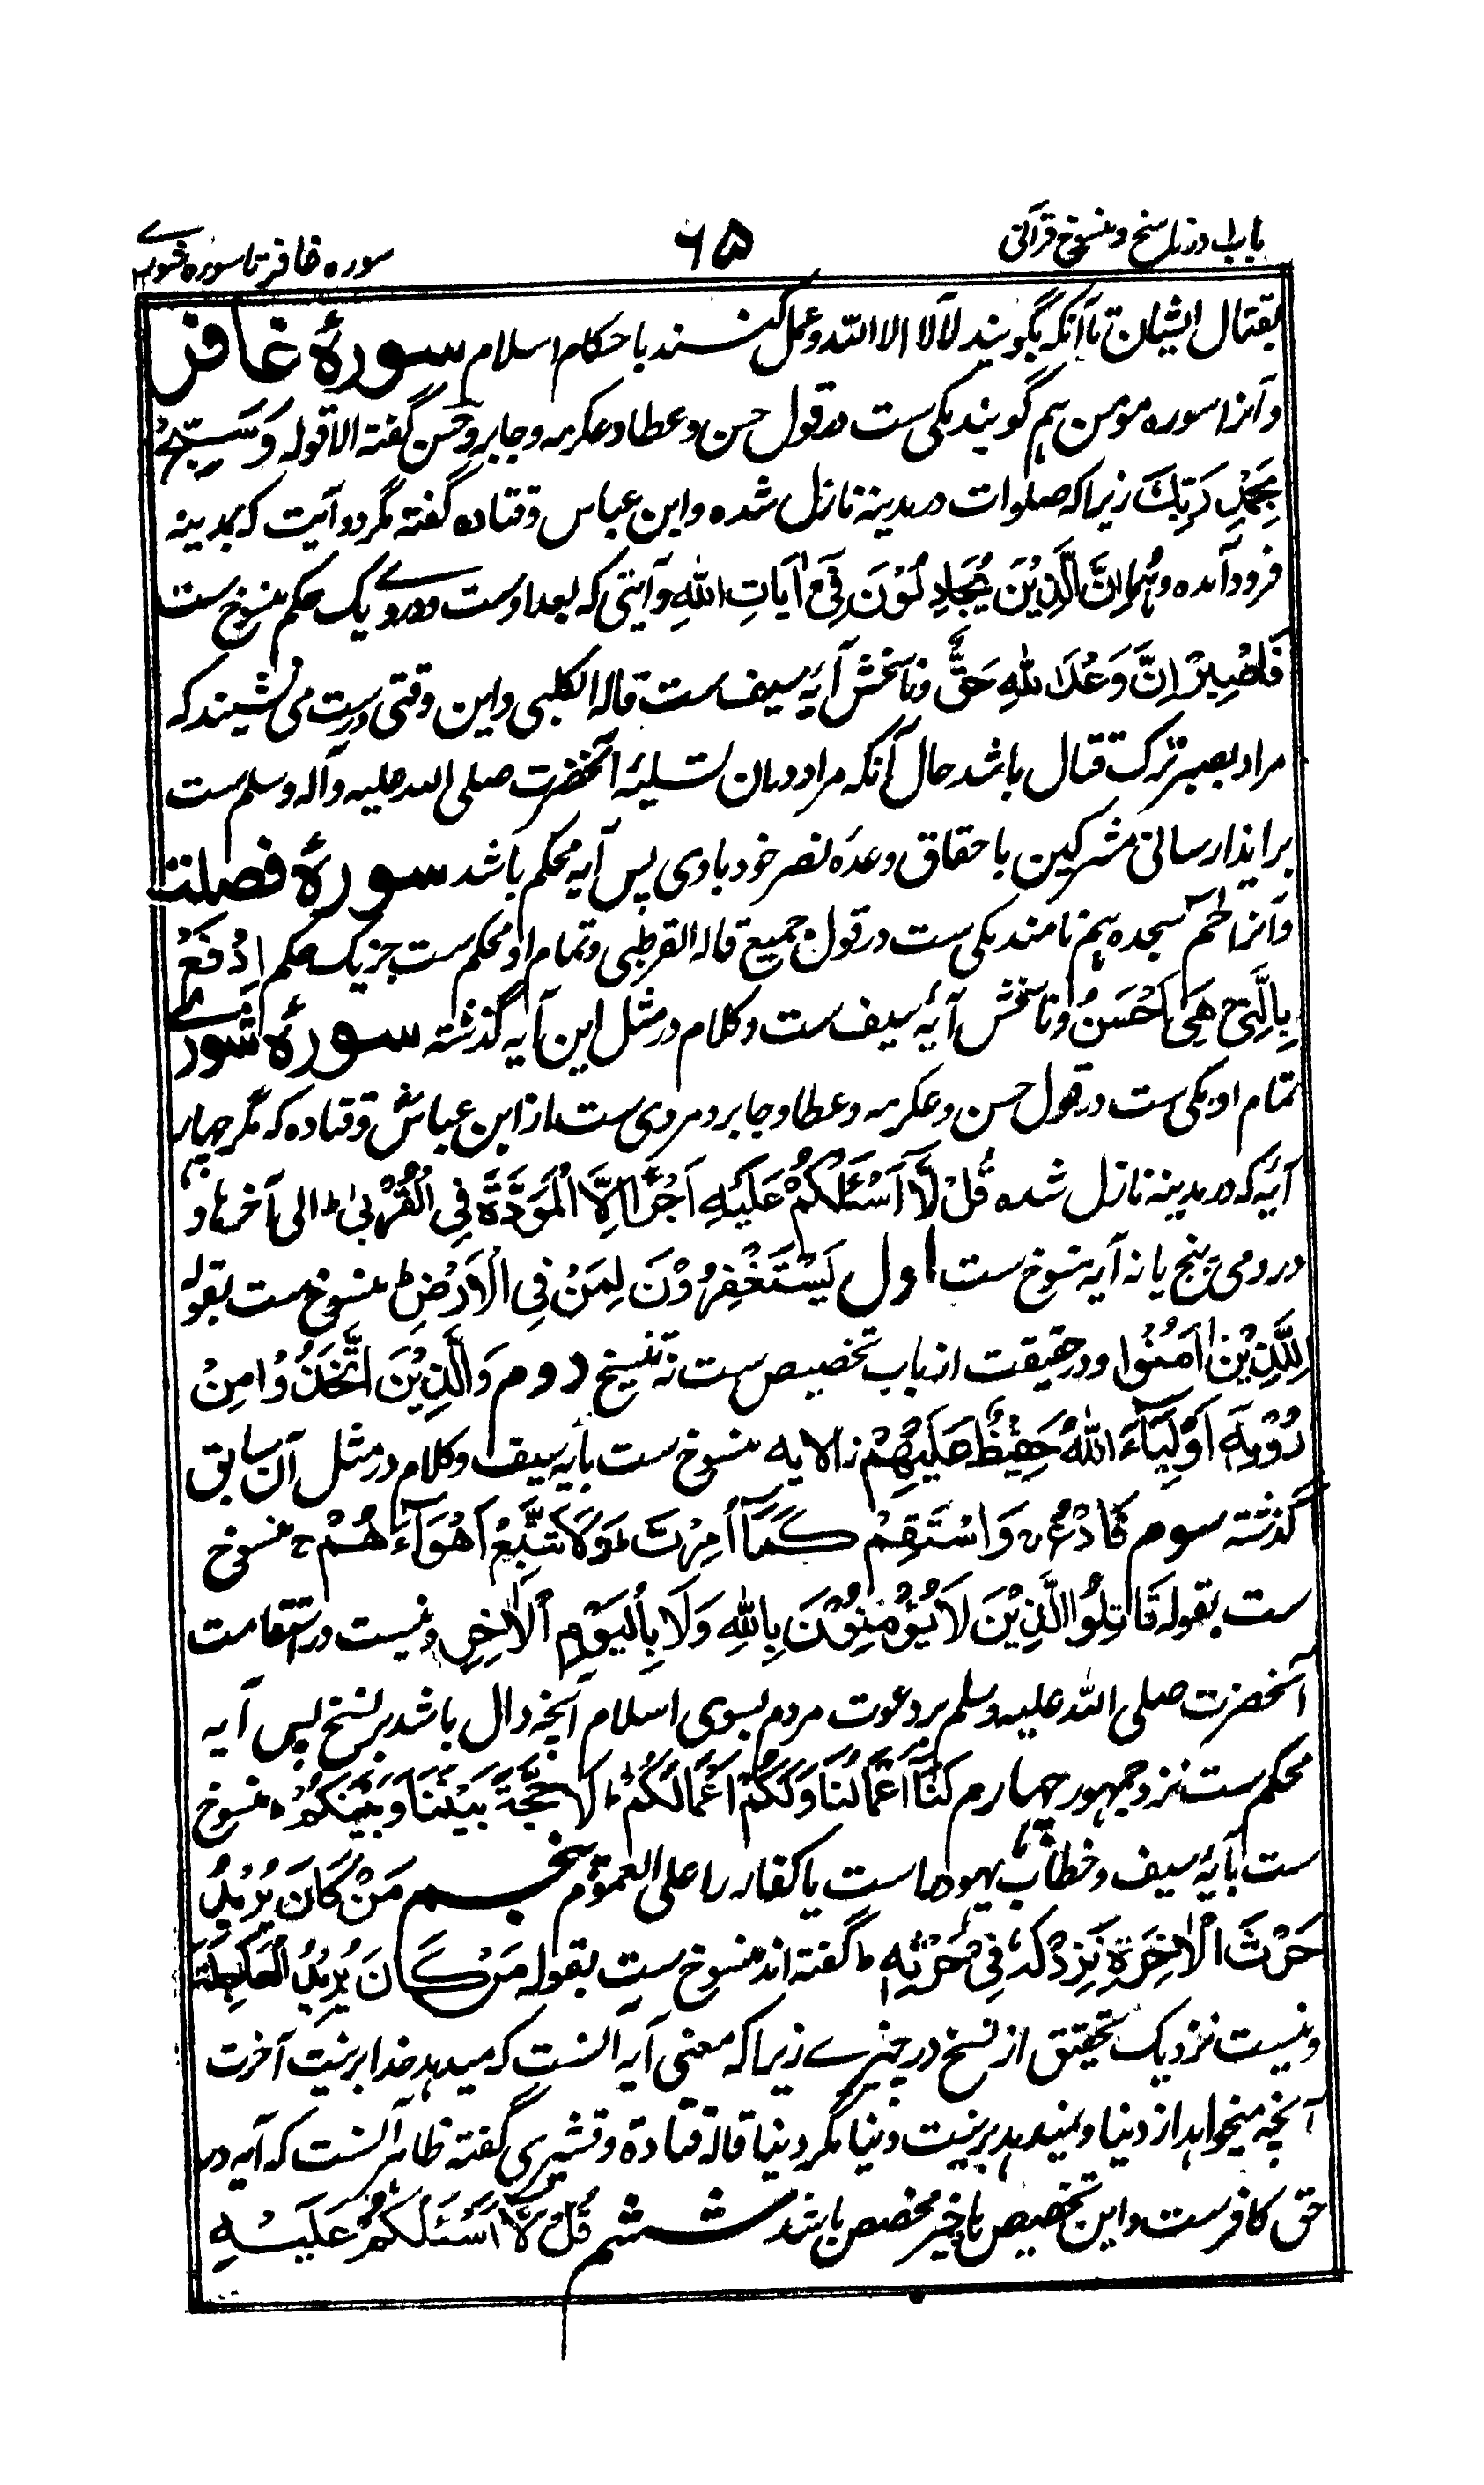 باب اول در ناسخ و منسوخ قرآنی
۶۵
سوره غافر تا سوره شوریٰ
بقتال ایشان تا آنکه بگویند لا اله الا الله و عمل کنند باحکام اسلام سورۂ غافر
و آنرا سوره مؤمن هم گویند مکی ست در قول حسن و عطا و عکرمه و جابر و حسن گفته الا قوله وَسَبِّحْ
بِحَمْدِ رَبِّكَ زیرا که صلوات در مدینه نازل شده و ابن عباس و قتاده گفته مگر دو آیت که بمدینه
فرود آمده و هما اِنَّ الَّذِيْنَ يُجَادِلُوْنَ فِيْٓ اٰيَاتِ اللهِ و آیتی که بعد اوست و درو یک حکم منسوخ ست
فَاصْبِرْ اِنَّ وَعْدَ اللهِ حَقٌّ و ناسخش آیۂ سیف ست قاله الکلبی و این وقتی درست می نشیند که
مراد بصبر ترک قتال باشد حال آنکه مراد در ان تسلیۂ آنحضرت صلی الله علیه و آله و سلم ست
بر ایذا رسانی مشرکین باحقاق وعدۂ نصر خود باوی پس آیه محکم باشد سورۂ فصلت
و آنرا حٰم سجده هم نامند مکی ست در قول جمیع قاله القرطبی و تمام او محکم ست جز یک حکم اِدْفَعْ
بِالَّتِيْ هِيَ اَحْسَنُ و ناسخش آیۂ سیف ست و کلام در مثل این آیه گذشته سورۂ شوریٰ
تمام او مکی ست در قول حسن و عکرمه و عطا و جابر و مروی ست از ابن عباس و قتاده که مگر چهار
آیه که در مدینه نازل شده قُلْ لَّآ اَسْئَلُكُمْ عَلَيْهِ اَجْرًا اِلَّا الْمَوَدَّةَ فِي الْقُرْبٰى الی آخرها و
درو می پنج یا نه آیه منسوخ ست اول يَسْتَغْفِرُوْنَ لِمَنْ فِي الْاَرْضِ منسوخ ست بقوله
لِلَّذِيْنَ اٰمَنُوْا و در حقیقت از باب تخصیص ست نه تنسیخ دوم وَالَّذِيْنَ اتَّخَذُوْا مِنْ
دُوْنِهٖٓ اَوْلِيَآءَ اللهُ حَفِيْظٌ عَلَيْهِمْ الایه منسوخ ست بآیه سیف و کلام در مثل آن سابق
گذشته سوم فَادْعُ وَاسْتَقِمْ كَمَآ اُمِرْتَ وَلَا تَتَّبِعْ اَهْوَآءَهُمْ منسوخ
ست بقوله قَاتِلُوا الَّذِيْنَ لَا يُؤْمِنُوْنَ بِاللهِ وَلَا بِالْيَوْمِ الْاٰخِرِ و نیست در استقامت
آنحضرت صلی الله علیه وسلم بر دعوت مردم بسوی اسلام آنچه دال باشد بر نسخ پس آیه
محکم ست نزد جمهور چهارم لَنَآ اَعْمَالُنَا وَلَكُمْ اَعْمَالُكُمْ لَا حُجَّةَ بَيْنَنَا وَبَيْنَكُمْ منسوخ
ست بآیۂ سیف و خطاب یهود راست یا کفار را علی العموم پنجم مَنْ كَانَ يُرِيْدُ
حَرْثَ الْاٰخِرَةِ نَزِدْ لَهٗ فِيْ حَرْثِهٖ گفته اند منسوخ ست بقوله مَنْ كَانَ يُرِيْدُ الْعَاجِلَةَ
و نیست نزدیک تحقیق از نسخ در چیزے زیرا که معنی آیه آنست که میدهد خدا بر نیت آخرت
آنچه میخواهد از دنیا و نمیدهد بر نیت دنیا مگر دنیا قاله قتادة و قشیری گفته ظاهر آنست که آیه در
حق کافرست و این تخصیص باخیر مخصص باشد ششم قُلْ لَّآ اَسْئَلُكُمْ عَلَيْهِ